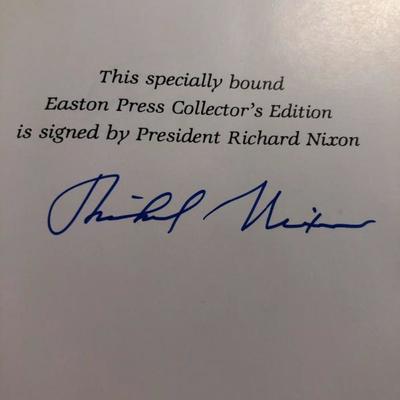 This specially bound
Easton Press Collector's Edition
is signed by President Richard Nixon
Richard Nixon